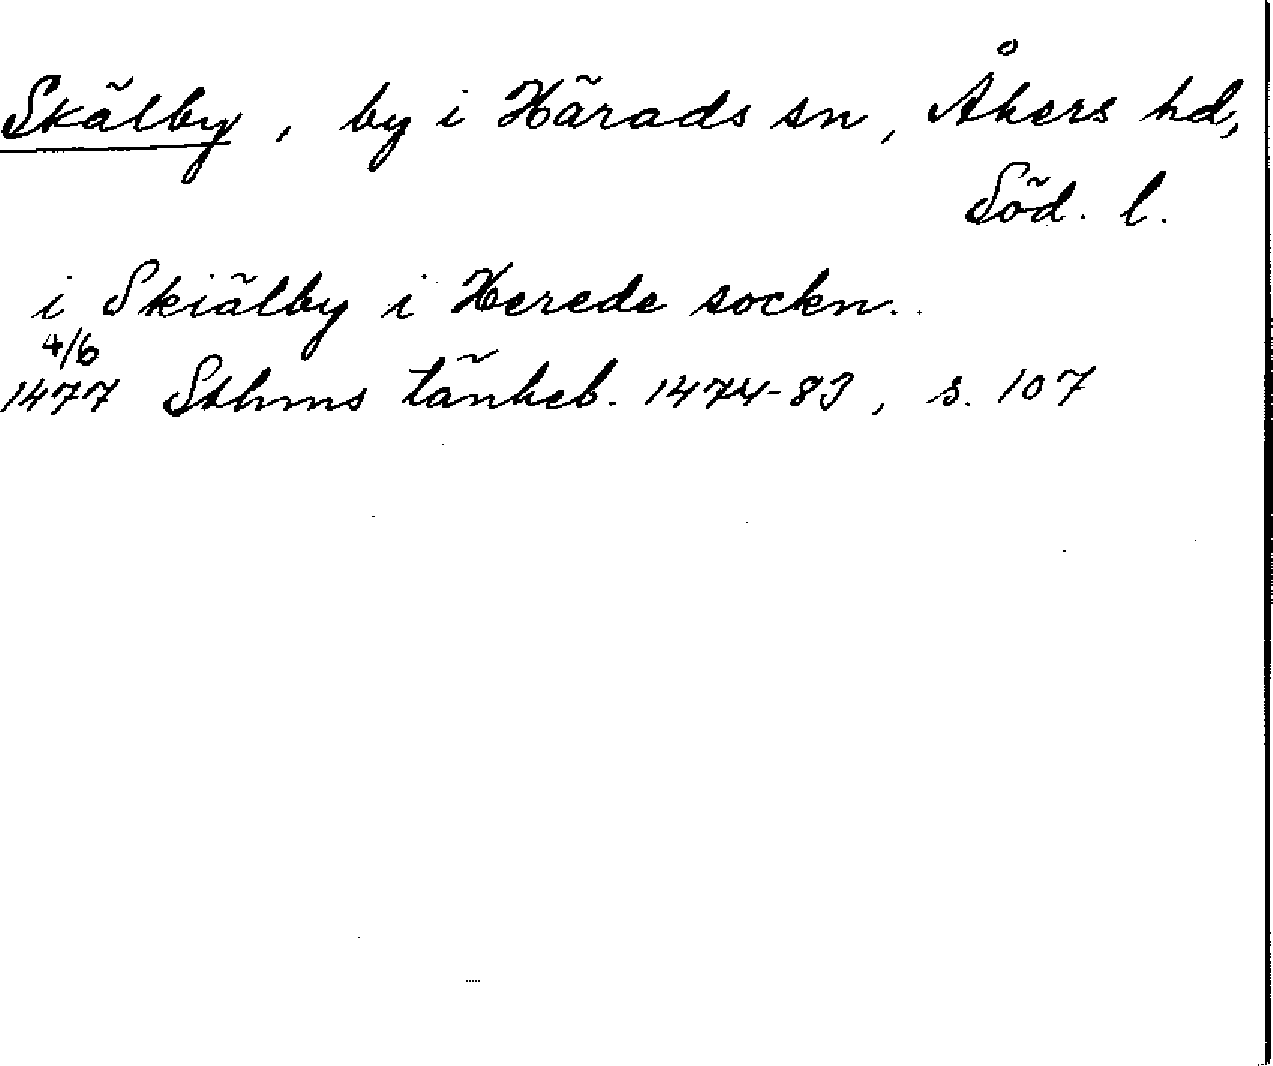 Skälby, by i Härads sn, Åkers hd,
Söd. l.
i Skiälby i Herede sockn..
4/6
1477 Sthms tänkeb. 1474-83, s. 107